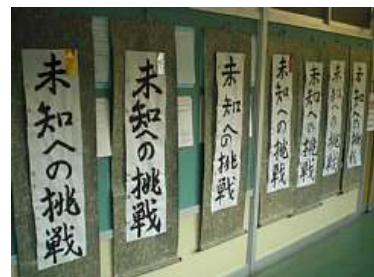 未知への挑戦
未知への挑戦
未知への挑戦
未知への挑戦
未知への挑戦
未知への挑戦
未知への挑戦